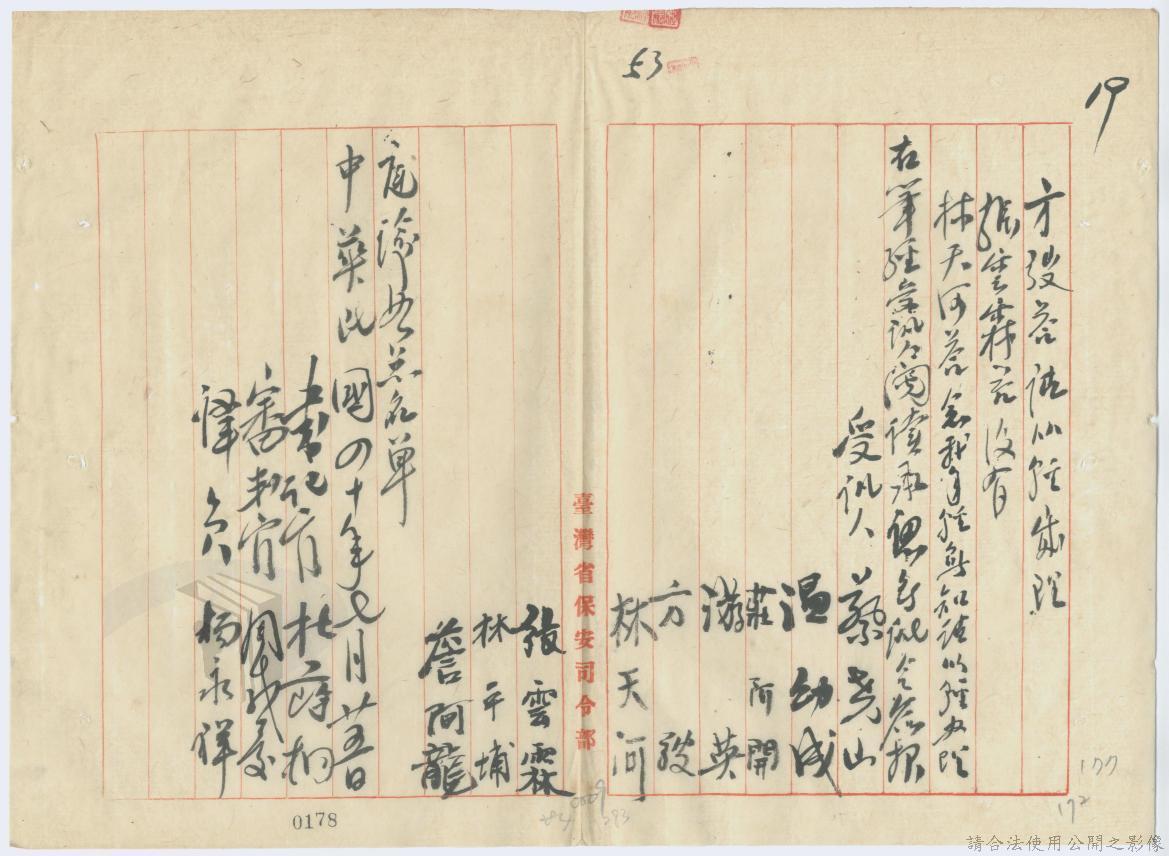 53
19
方發答請從輕處理
張雲霖答沒有
林天河答念我年輕無知請從輕處理
右筆經受訊人閱讀承認無訛令簽押
受訊人 蔡堯山
溫幼成
莊阿開
游英
方發
林天河
臺灣省保安司令部
張雲霖
林平埔
詹阿龍
庭諭如點名單
中華民國四十年七月廿五日
書記官 杜
審判官 周咸慶
譯員 楊永祥
0178
177
172
293
請合法使用公開之影像